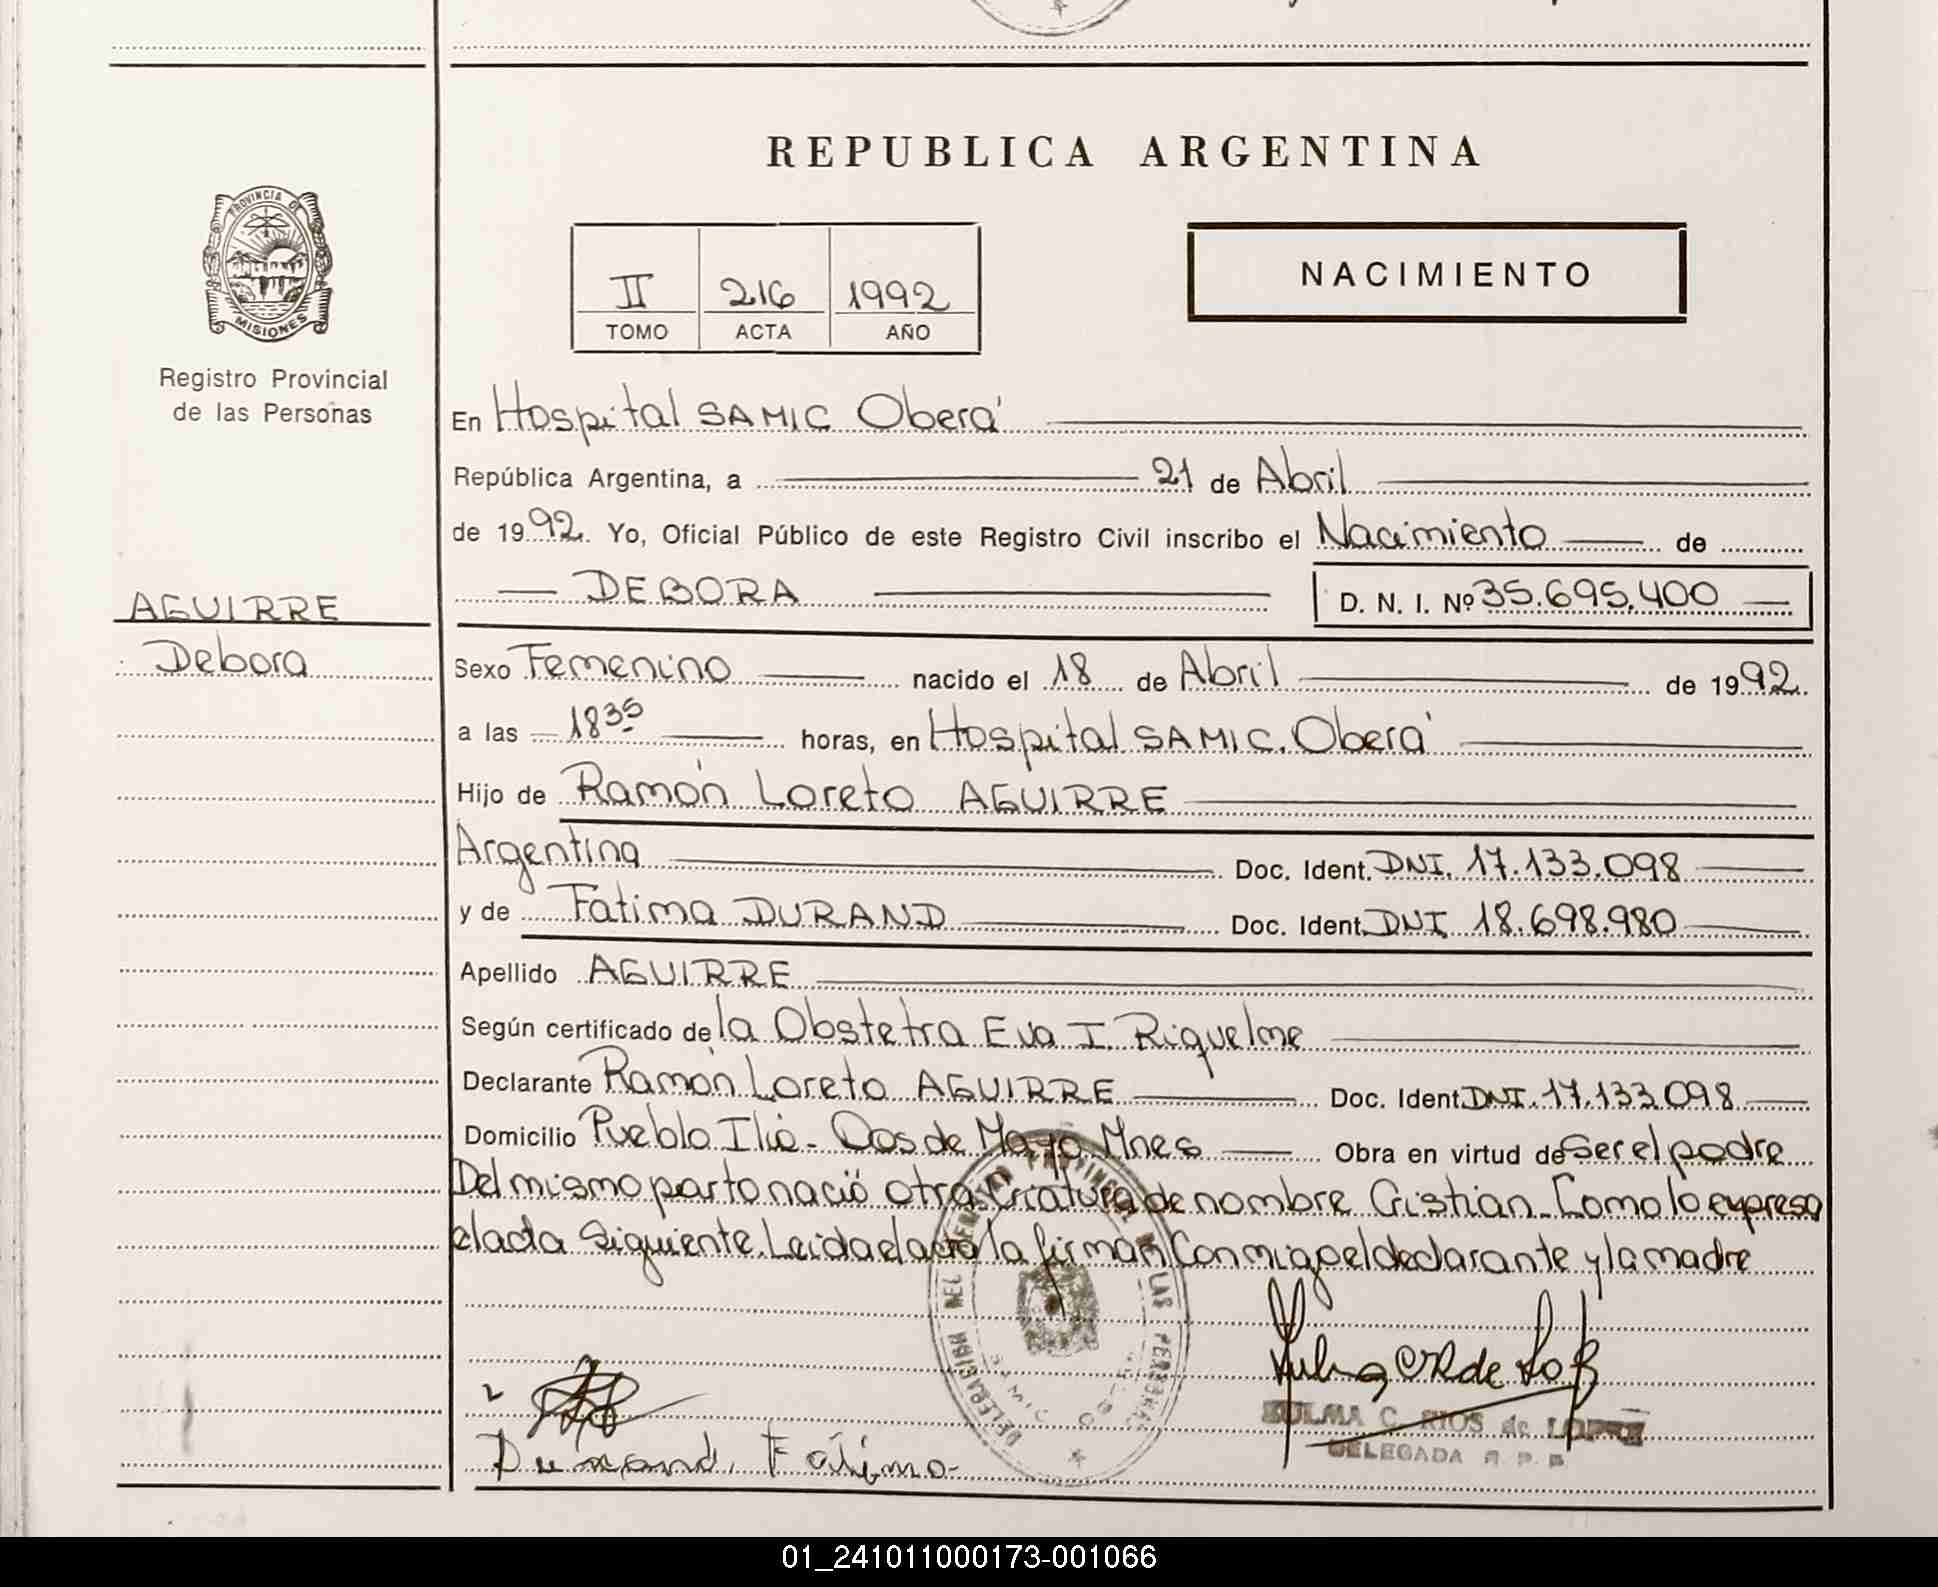 REPUBLICA ARGENTINA
PROVINCIA DE
MISIONES
Registro Provincial
de las Personas
II 216 1992
TOMO ACTA AÑO
NACIMIENTO
En Hospital SAMIC Oberá
República Argentina, a 21 de Abril
de 1992. Yo, Oficial Público de este Registro Civil inscribo el Nacimiento de
DEBORA D. N. I. Nº 35.695.400
AGUIRRE
Debora
Sexo Femenino nacido el 18 de Abril de 1992.
a las 18 35 horas, en Hospital SAMIC. Oberá
Hijo de Ramón Loreto AGUIRRE
Argentina Doc. Ident. DNI. 17.133.098
y de Fatima DURAND Doc. Ident. DNI 18.698.980
Apellido AGUIRRE
Según certificado de la Obstetra Eva I. Riquelme
Declarante Ramón Loreto AGUIRRE Doc. Ident. DNI. 17.133.098
Domicilio Pueblo Ilia - Dos de Mayo Mnes Obra en virtud de ser el padre
Del mismo parto nació otra criatura de nombre Cristian. Como lo expresa
el acta siguiente. Leida el acta la firman conmigo el declarante y la madre
Durand, Fátima
ZULMA C. RIOS de LOPEZ
DELEGADA R. P. P.
01_241011000173-001066